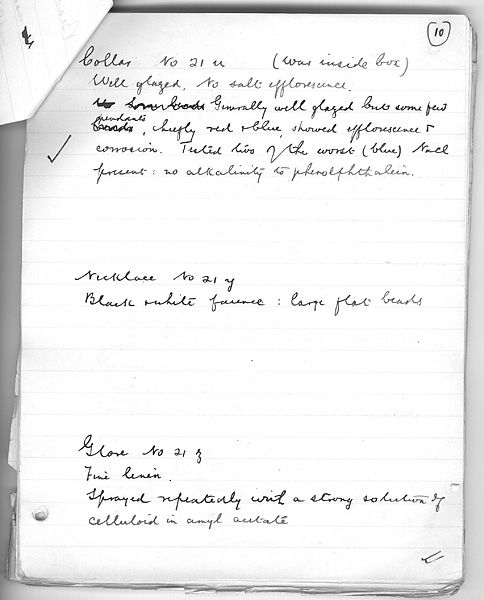 10
Collar No 21 u (was inside box)
Well glazed. No salt efflorescence.
Generally well glazed but some few
pendants
beads, chiefly red & blue, showed efflorescence &
corrosion. Tested two of the worst (blue) NaCl
present: no alkalinity to phenolphthalein.
Necklace No 21 y
Black & white faience: large flat beads
Glove No 21 z
Fine linen.
Sprayed repeatedly with a strong solution of
celluloid in amyl acetate